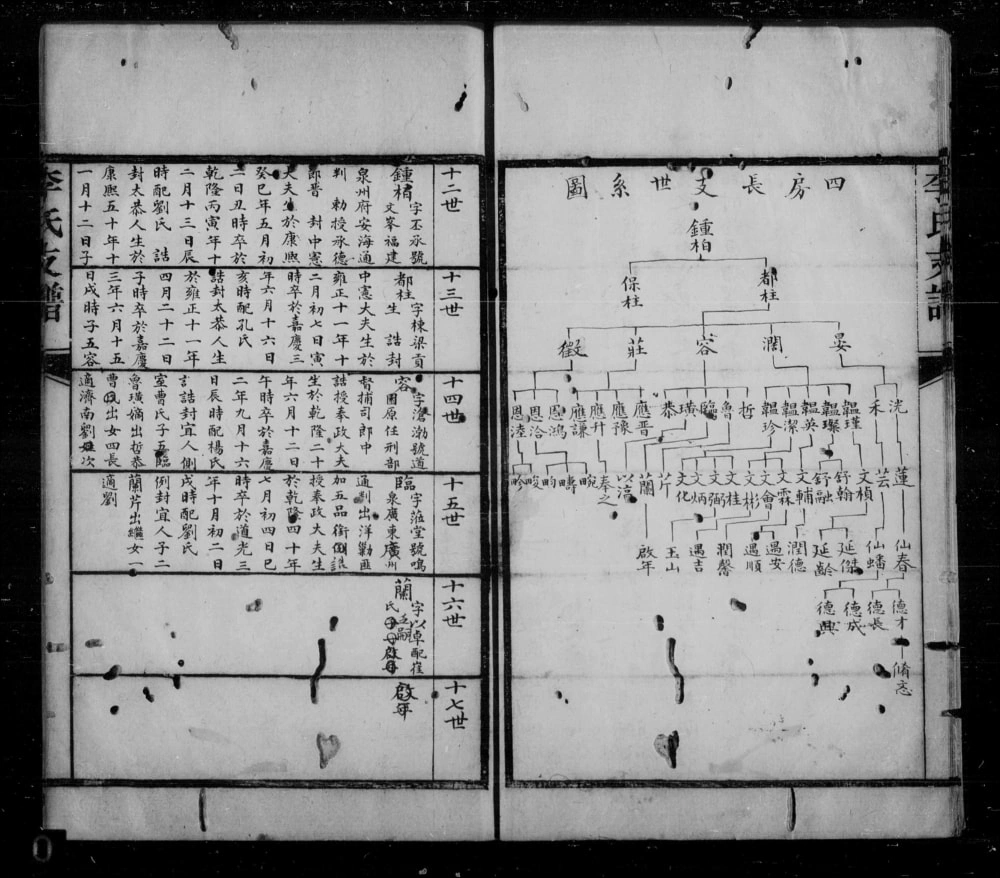 四房長支世系圖
鍾柏
都柱
保柱
晏
濶
容
莊
徵
洸
禾
韞瑾
韞璨
韞英
韞潔
韞珍
哲
魯
臨
璜
恭
應晋
應豫
應升
應謙
恩鴻
恩洽
恩逵
蓮
芸
文楨
舒翰
舒融
文輔
文霖
文會
文彬
文桂
文弼
文炳
文化
芹
蘭
以溍
奉之
畹
疇
畇
畯
畛
仙春
仙蟠
延傑
延齡
潤德
遇安
遇順
潤馨
遇吉
玉山
啟年
德才
德長
德成
德興
脩志
李氏支譜
十二世
鍾柏
字丕承號
文峯福建
泉州府安海通
判 勅授承德
郎晋 封中憲
大夫生於康熙
癸巳年五月初
二日丑時卒於
乾隆丙寅年十
二月十三日辰
時配劉氏 誥
封太恭人生於
康熙五十年十
一月十二日子
十三世
都柱
字棟梁貢
生 誥封
中憲大夫生於
雍正十一年十
二月初七日寅
時卒於嘉慶三
年六月十六日
亥時配孔氏
誥封太恭人生
於雍正十一年
四月二十二日
子時卒於嘉慶
十三年六月十五
日戌時子五容
十四世
容
字澹渤號道
圃原任刑部
督捕司郎中
誥授奉政大夫
生於乾隆二十
年六月十二日
午時卒於嘉慶
二年九月十六
日辰時配楊氏
誥封宜人側
室曹氏子五臨
魯璜嫡出哲恭
曹氏出女四長
適濟南劉姓次
十五世
臨
字蒞堂號鳴
泉廣東廣州
通判出洋勦匪
加五品銜
授奉政大夫生
於乾隆四十年
七月初四日巳
時卒於道光三
年十月初二日
戌時配劉氏
例封宜人子二
蘭芹出繼女一
適劉
十六世
蘭
字以卓配崔
氏
十七世
啟年
李氏支譜